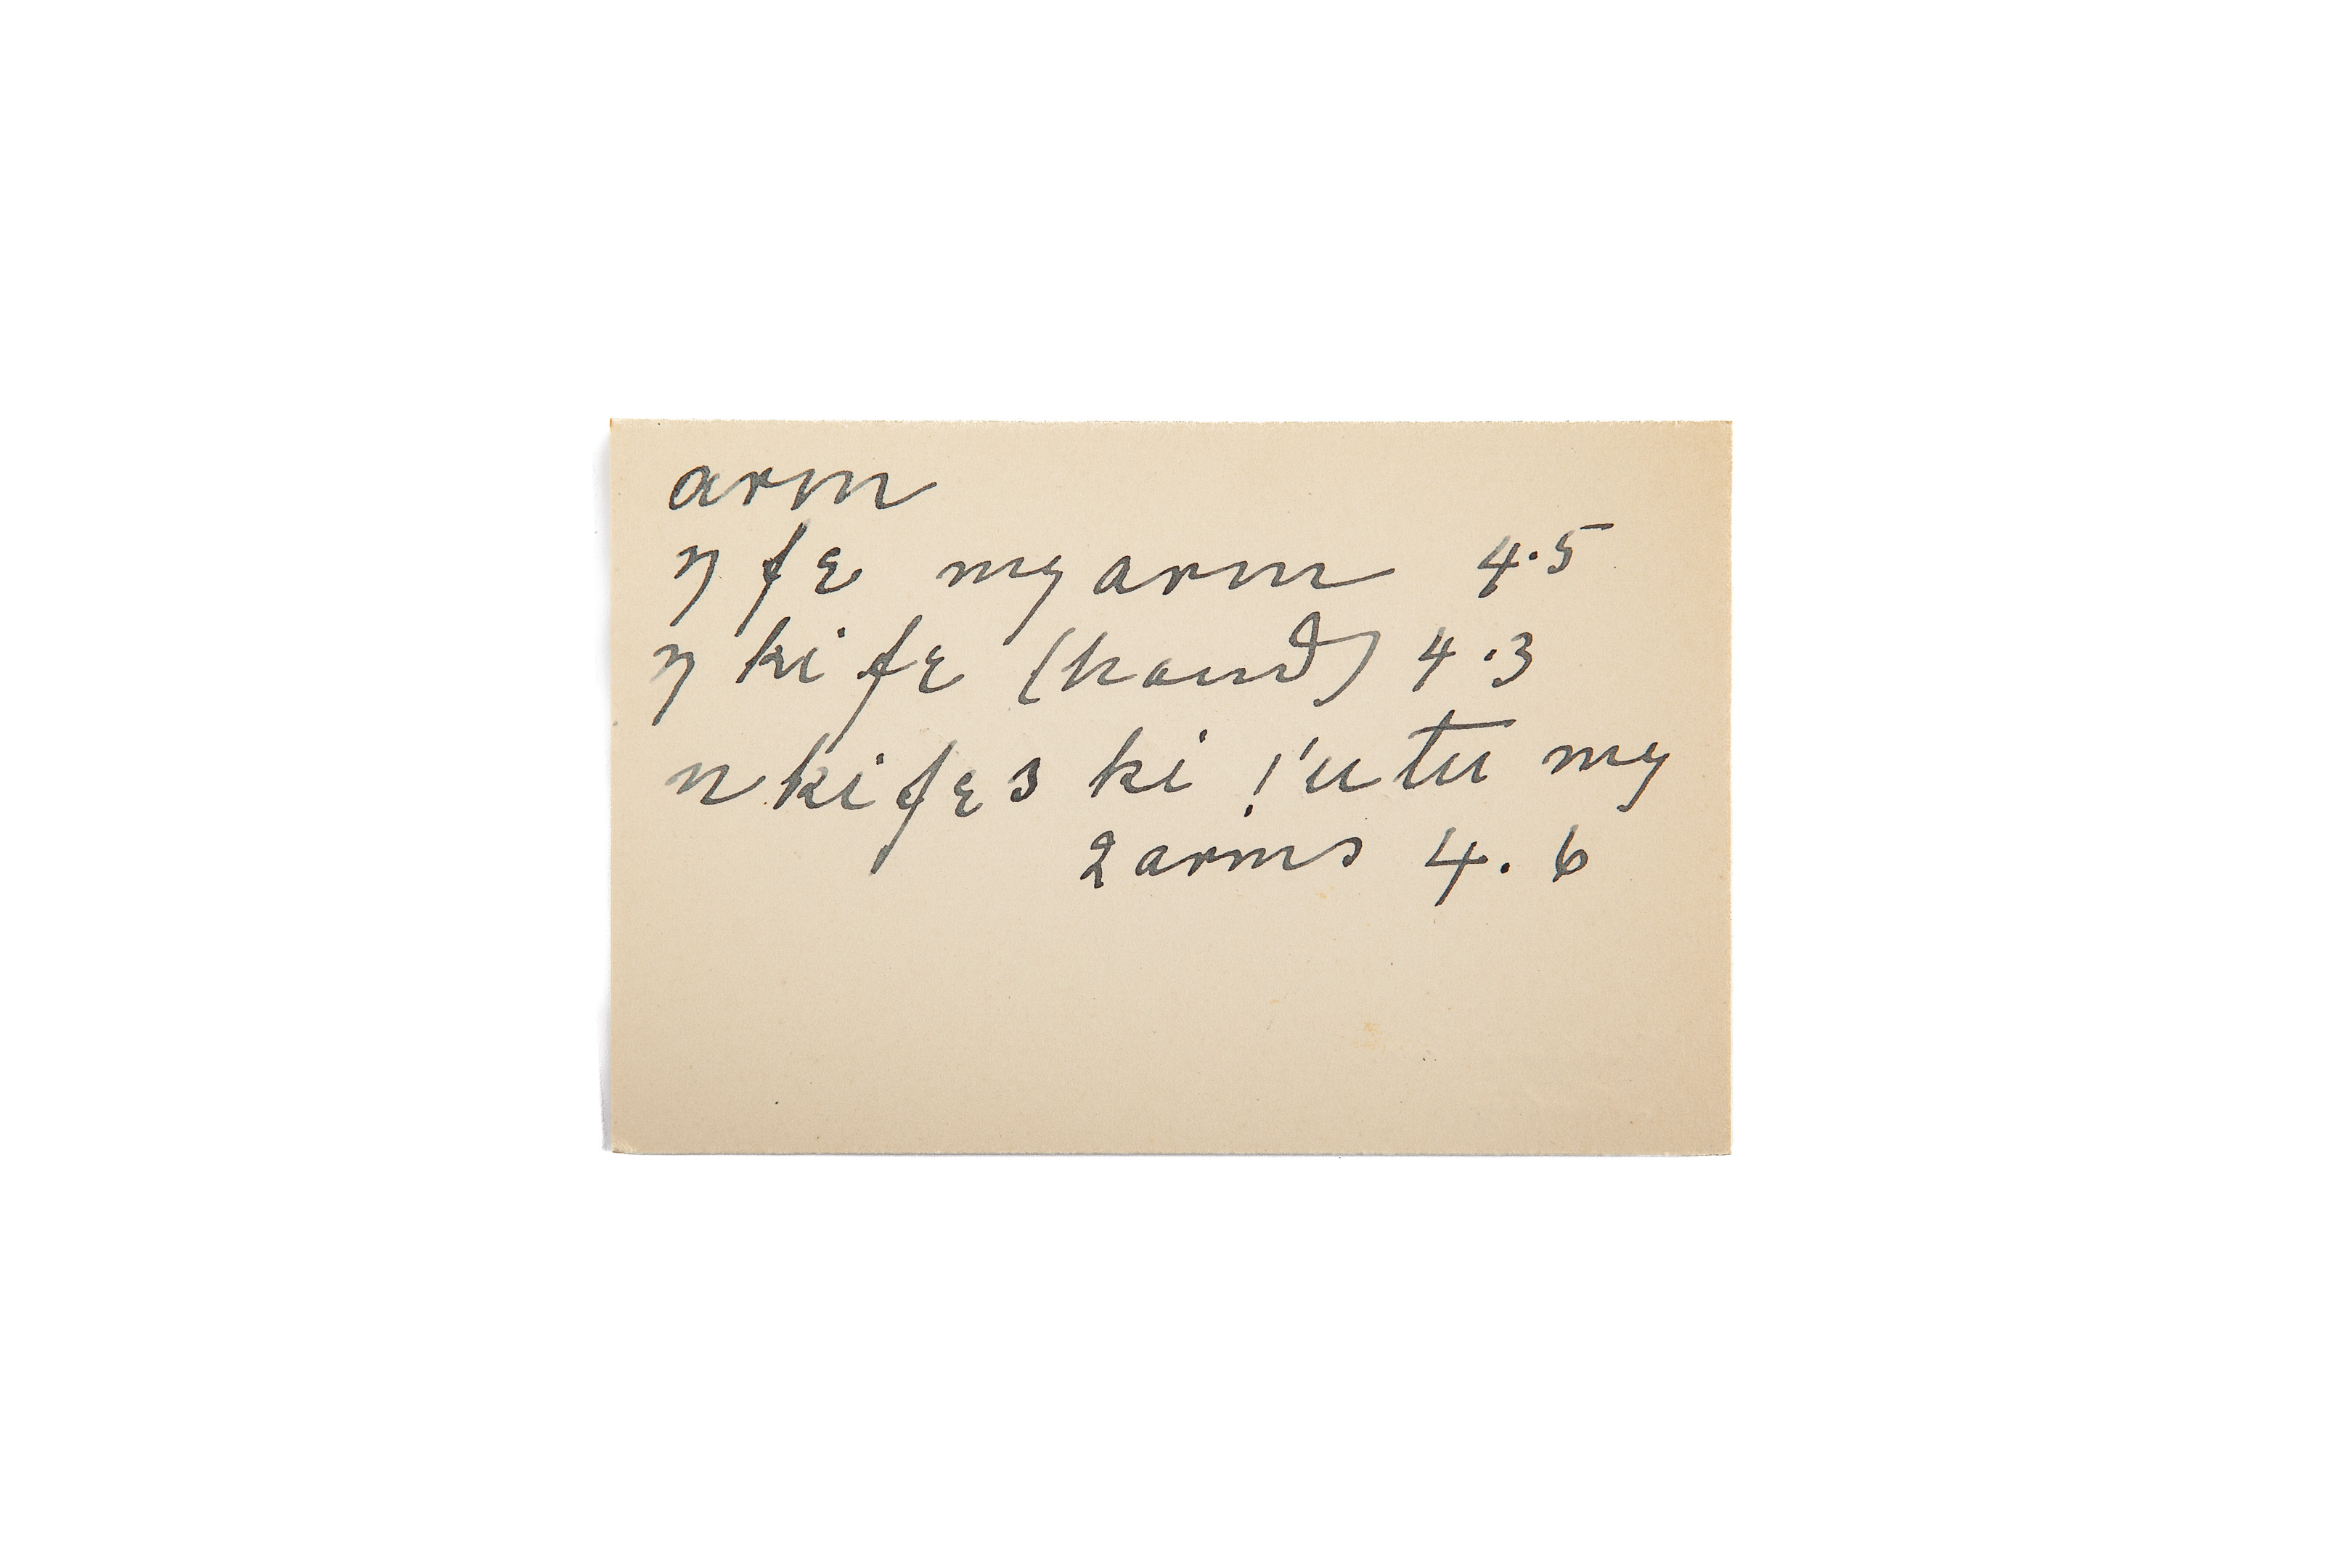 arm
ŋ fɛ my arm 4.5
ŋ ki fɛ (hand) 4.3
n ki fɛ s ki !'utu my
2 arms 4. 6